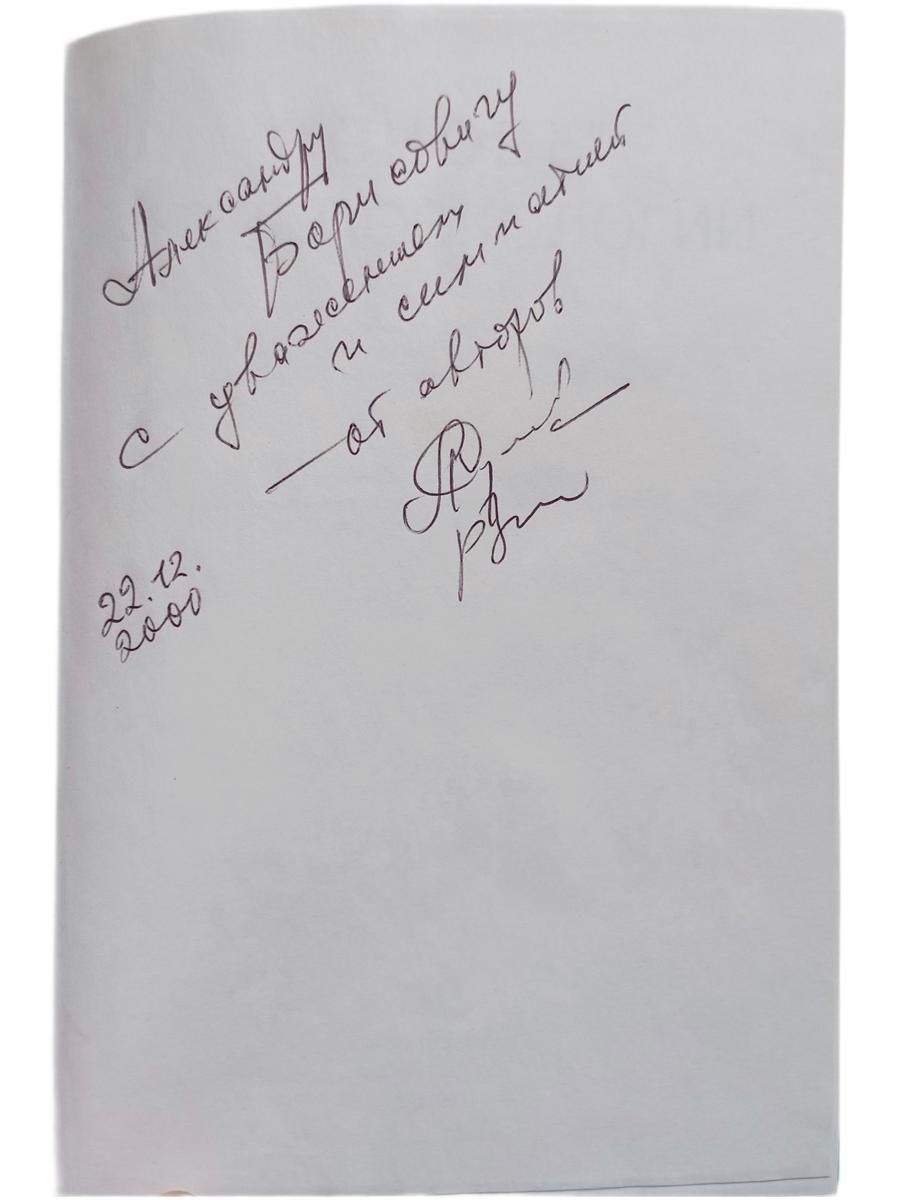 Александру
Борисовичу
с уважением
и симпатией
— от авторов —
22.12.
2000